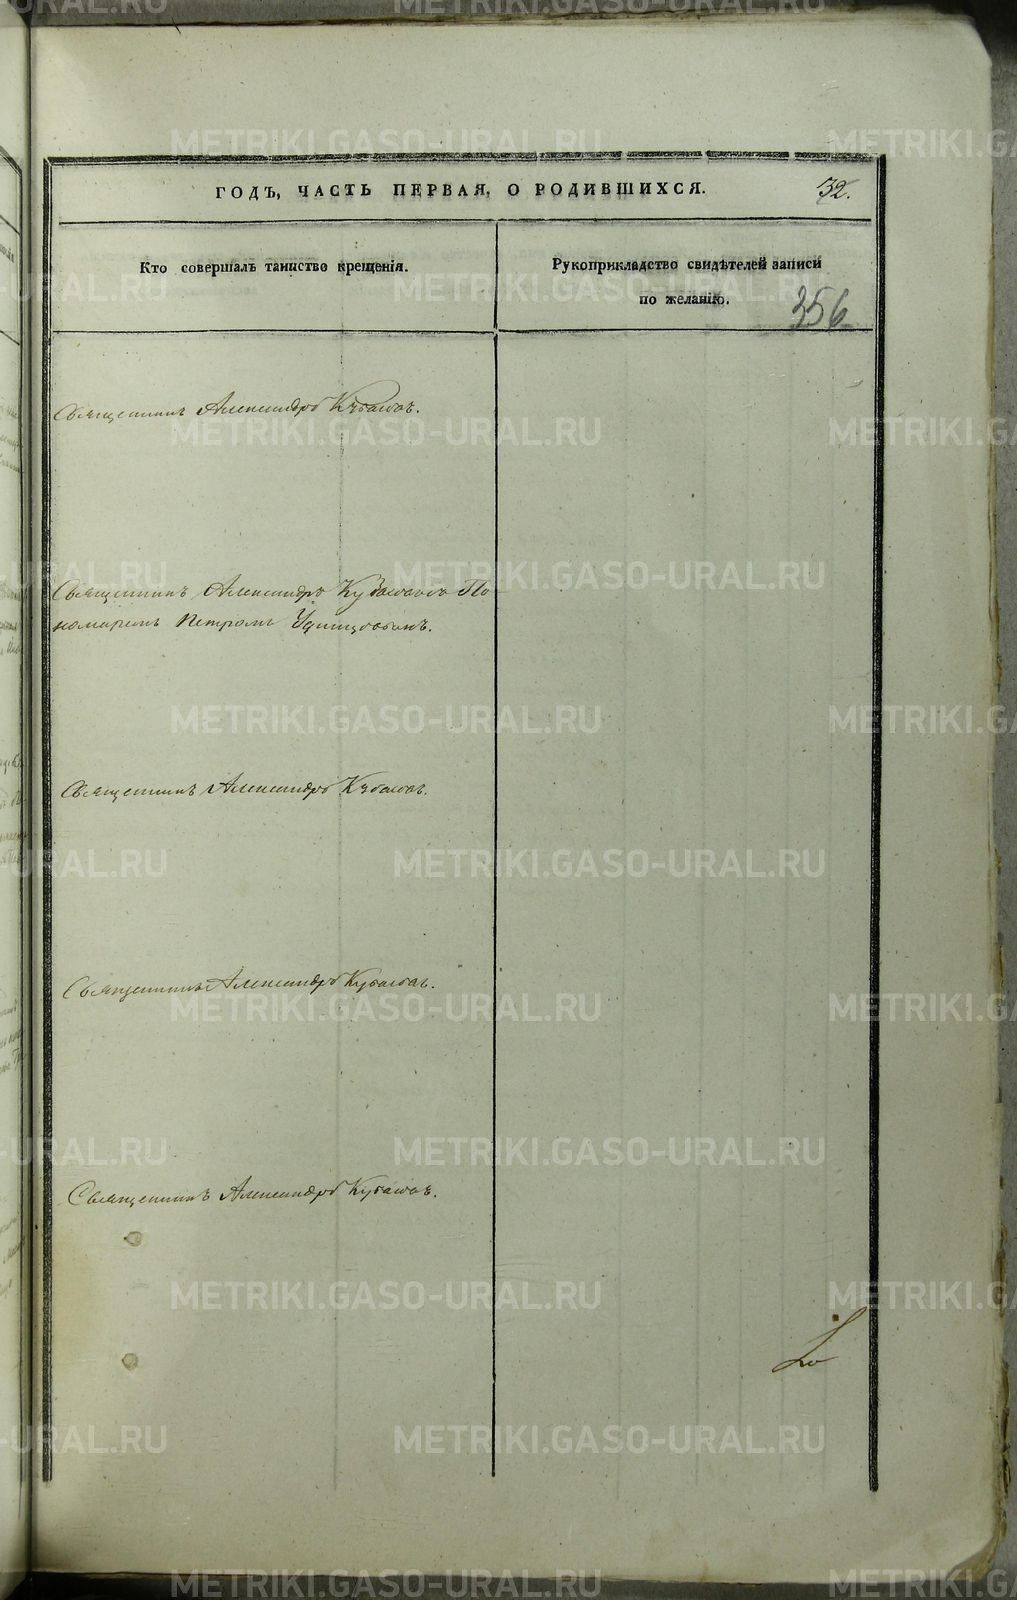 ГОДЪ, ЧАСТЬ ПЕРВАЯ, О РОДИВШИХСЯ.
32.
Кто совершалъ таинство крещенія.
Рукоприкладство свидѣтелей записи
по желанію.
356
Священникъ Александръ Кубасовъ.
Священникъ Александръ Кубасовъ съ По-
номаремъ Петромъ
Священникъ Александръ Кубасовъ.
Священникъ Александръ Кубасовъ.
Священникъ Александръ Кубасовъ.
METRIKI.GASO-URAL.RU